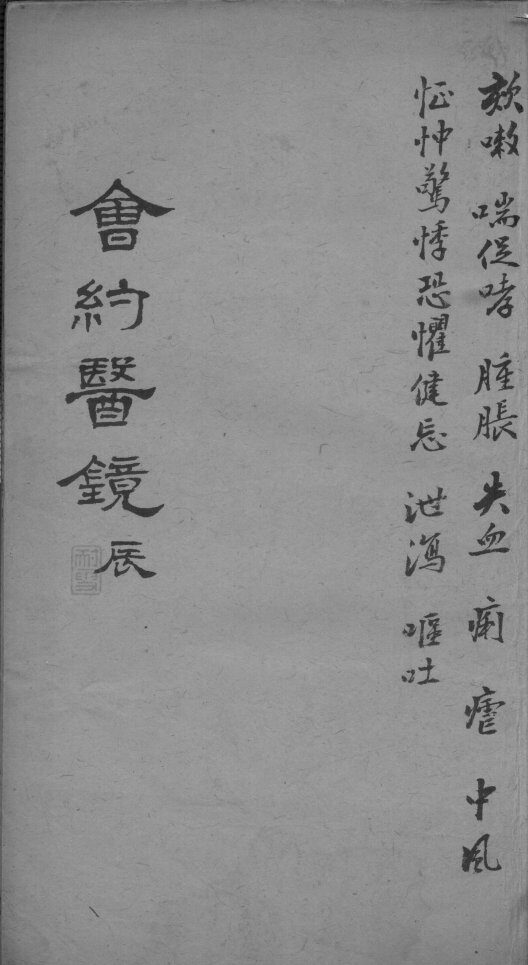 欬嗽 喘促哮 腫脹 失血 痢 瘧 中風
怔忡驚悸恐懼健忘 泄瀉 嘔吐
會約醫鏡 辰